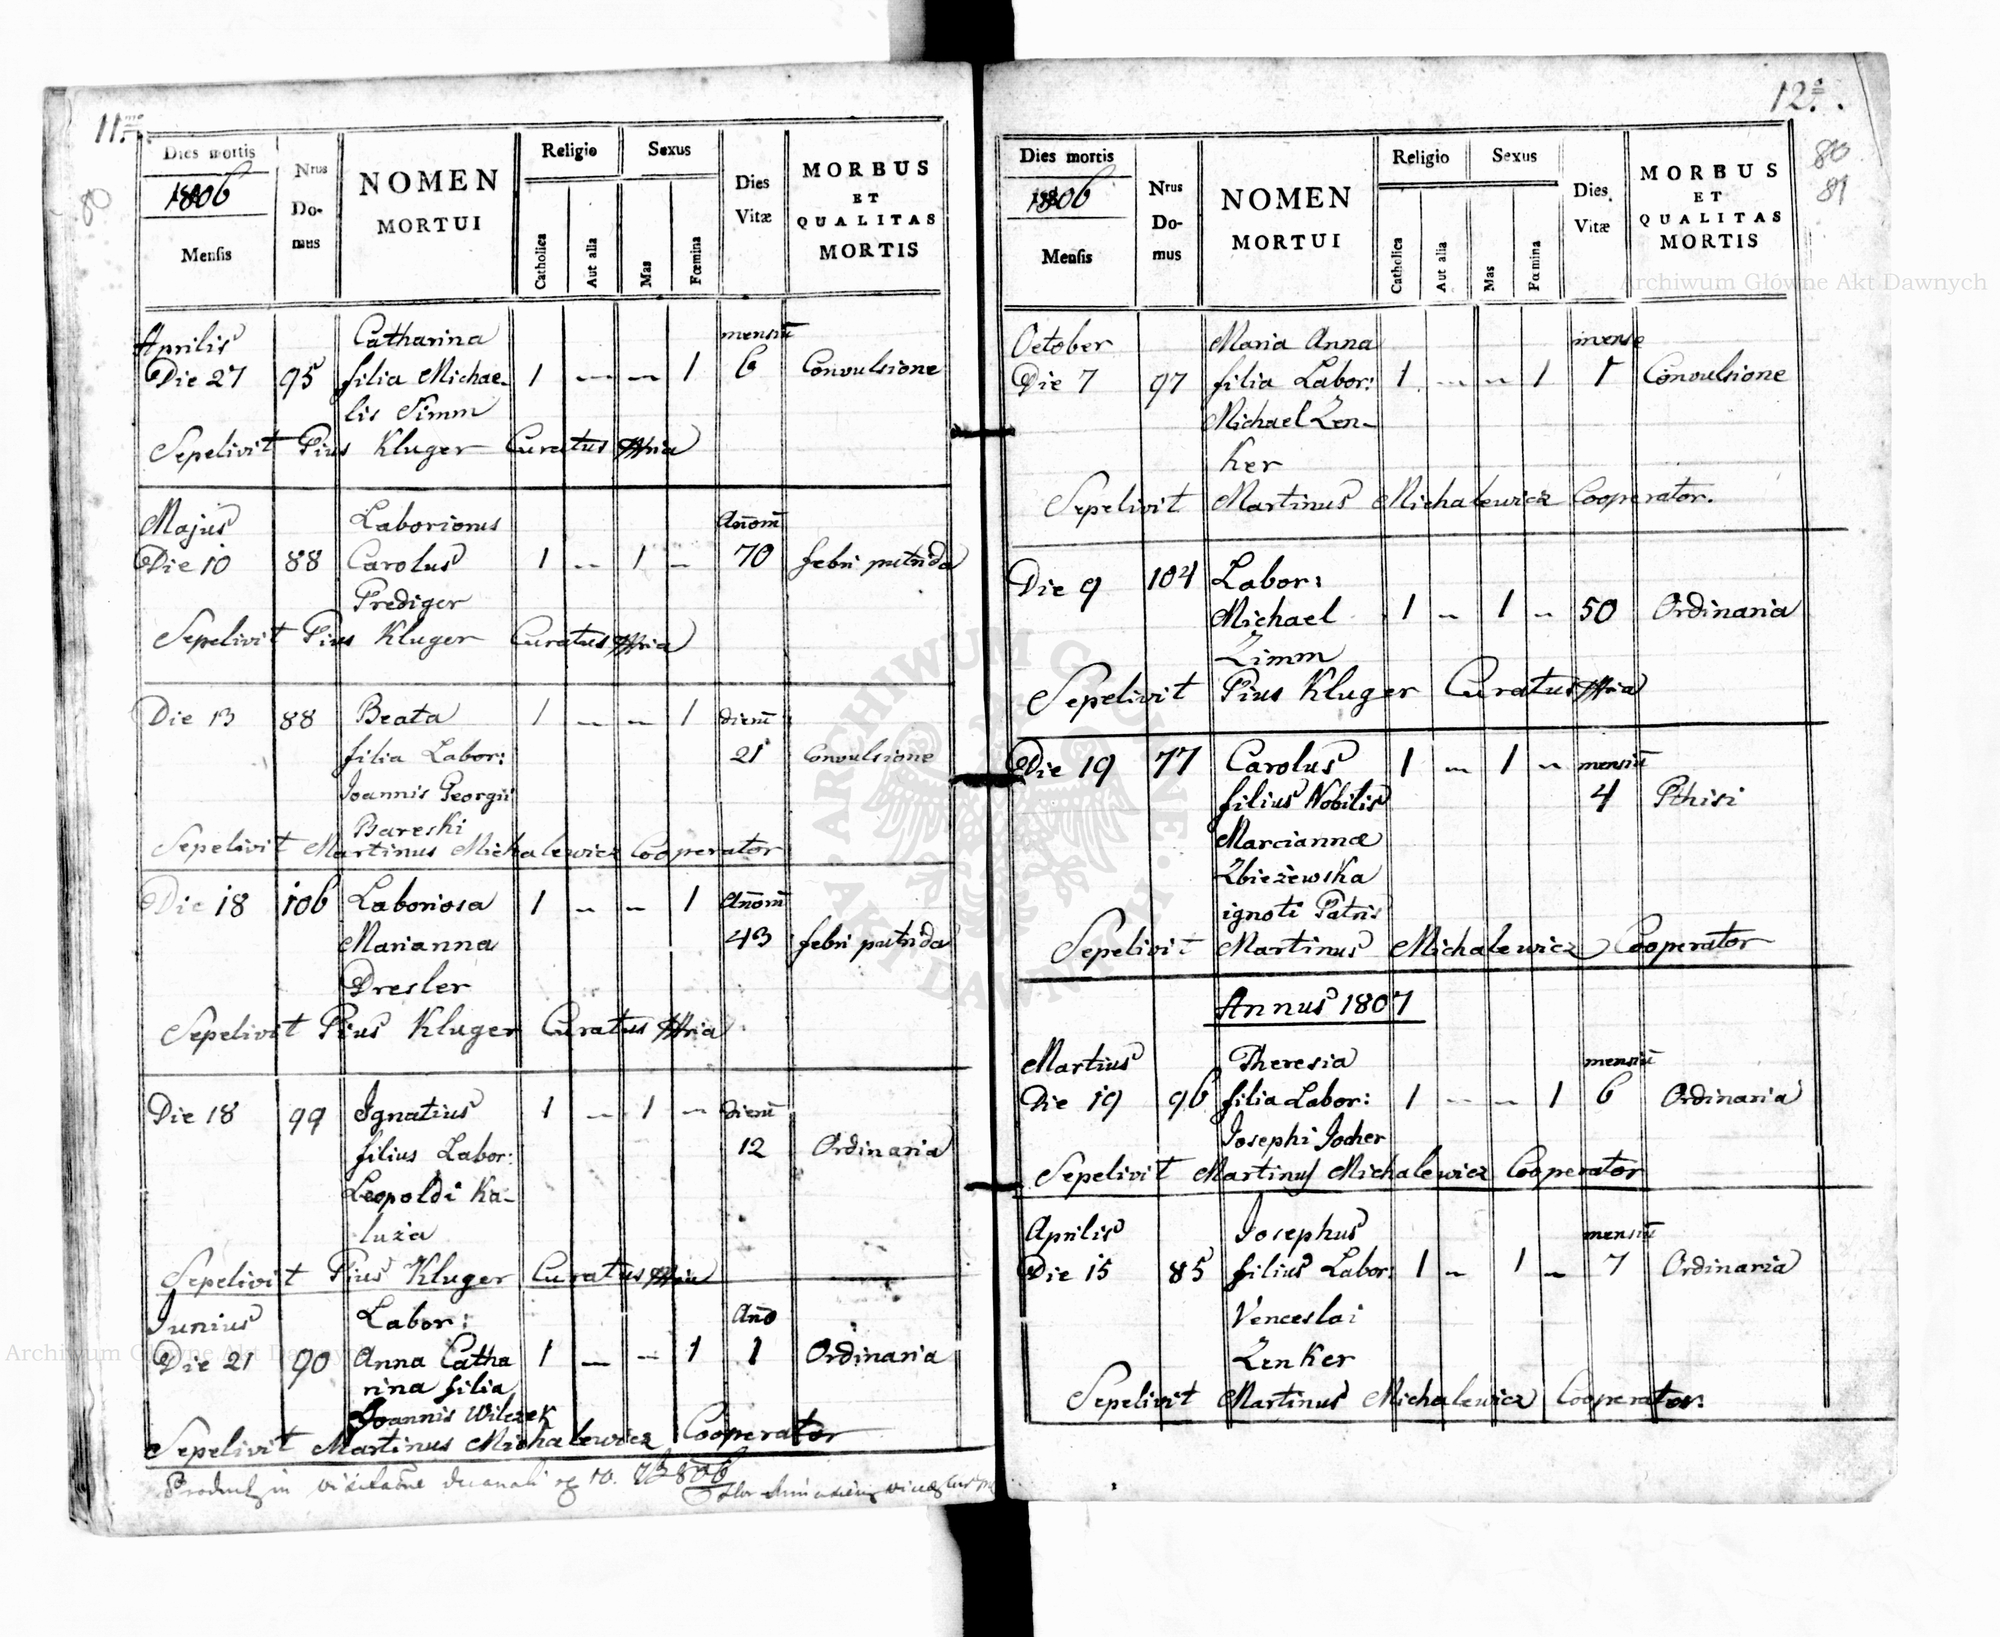 11.mo
80
Dies mortis
1806
Mensis
Nrus Domus
NOMEN MORTUI
Religio
Catholica
Aut alia
Sexus
Mas
Fœmina
Dies Vitæ
MORBUS ET QUALITAS MORTIS
Aprilis Catharina mensiū
Die 27 95 filia Michae- 1 — — 1 6 Convulsione
lis Simm
Sepelivit Pius Kluger Curatus
Majus Laboriosus Añom̄
Die 10 88 Carolus 1 — 1 — 70 febri putrida
Prediger
Sepelivit Pius Kluger Curatus
Die 13 88 Beata 1 — — 1 dierū
filia Labor: 21 Convulsione
Joannis Georgii
Bareski
Sepelivit Martinus Michalewicz Cooperator
Die 18 106 Laboriosa 1 — — 1 Añom̄
Marianna 43 febri putrida
Dresler
Sepelivit Pius Kluger Curatus
Die 18 99 Ignatius 1 — 1 — dierū
filius Labor: 12 Ordinaria
Leopoldi Ka-
luża
Sepelivit Pius Kluger Curatus
Junius Labor: Año
Die 21 90 Anna Catha 1 — — 1 1 Ordinaria
rina filia
Joannis Wilczek
Sepelivit Martinus Michalewicz Cooperator
in 10.
12.
80
81
Dies mortis
1806
Mensis
Nrus Domus
NOMEN MORTUI
Religio
Catholica
Aut alia
Sexus
Mas
Fœmina
Dies Vitæ
MORBUS ET QUALITAS MORTIS
October Maria Anna mense
Die 7 97 filia Labor: 1 — — 1 1 Convulsione
Michael Zen-
ker
Sepelivit Martinus Michalewicz Cooperator.
Die 9 104 Labor:
Michael 1 — 1 — 50 Ordinaria
Zimm
Sepelivit Pius Kluger Curatus
Die 19 77 Carolus 1 — 1 — mensiū
filius Nobilis 4 Pthisi
Marciannæ
Zbieżewska
ignoti Patris
Sepelivit Martinus Michalewicz Cooperator
Annus 1807
Martius Theresia mensiū
Die 19 96 filia Labor: 1 — — 1 6 Ordinaria
Josephi Jocher
Sepelivit Martinus Michalewicz Cooperator
Aprilis Josephus mensiū
Die 15 85 filius Labor: 1 — 1 — 7 Ordinaria
Venceslai
Zenker
Sepelivit Martinus Michalewicz Cooperator.
Archiwum Główne Akt Dawnych
Archiwum Główne Akt Dawnych
ARCHIWUM GŁÓWNE • AKT DAWNYCH •